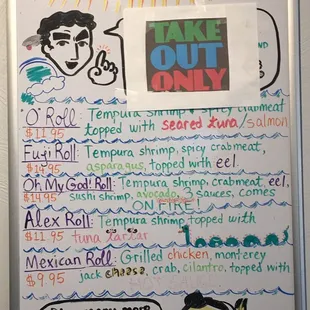 TAKE
OUT
ONLY
"O" Roll: Tempura shrimp, spicy crabmeat
$11.95 topped with seared tuna/salmon
Fuji Roll: Tempura shrimp, spicy crabmeat,
$14.95 asparagus, topped with eel.
Oh My God! Roll: Tempura shrimp, crabmeat, eel,
$14.95 sushi shrimp, avocado, 3 sauces, comes
ON FIRE
Alex Roll: Tempura shrimp topped with
$11.95 tuna tartar
Mexican Roll: Grilled chicken, monterey
$9.95 jack cheese, crab, cilantro, topped with